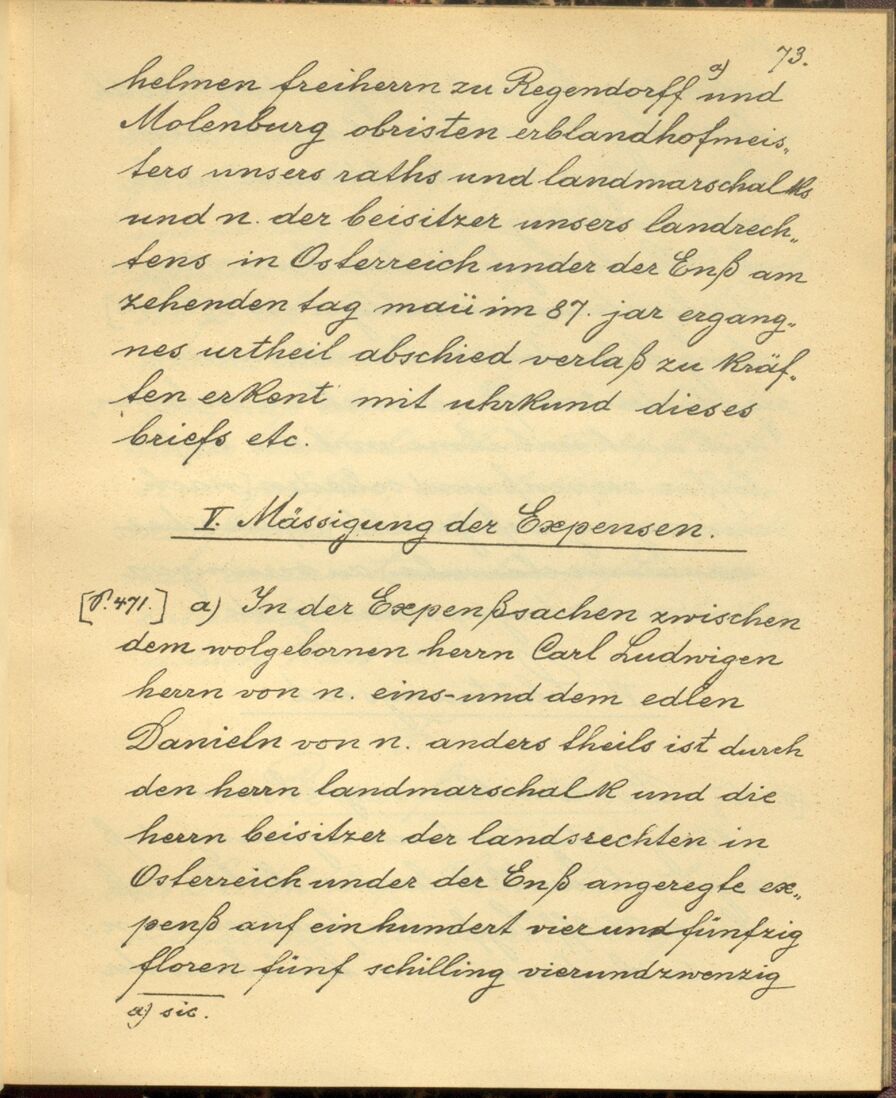 73.
helmen freiherrn zu Regendorff a) und
Molenburg obristen erblandhofmeis„
ters unsers raths und landmarschalks
und n. der beisitzer unsers landrech„
tens in Osterreich under der Enß am
zehenden tag maii im 87. jar ergang„
nes urtheil abschied verlaß zu kräf„
ten erkent mit uhrkund dieses
briefs etc.
V. Mässigung der Expensen.
[P. 471.] a) In der Expenßsachen zwischen
dem wolgebornen herrn Carl Ludwigen
herrn von n. eins- und dem edlen
Danieln von n. anders theils ist durch
den herrn landmarschalk und die
herrn beisitzer der landsrechten in
Osterreich under der Enß angeregte ex„
penß auf einhundert vierundfünfzig
floren fünf schilling vierundzwenzig
a) sic.